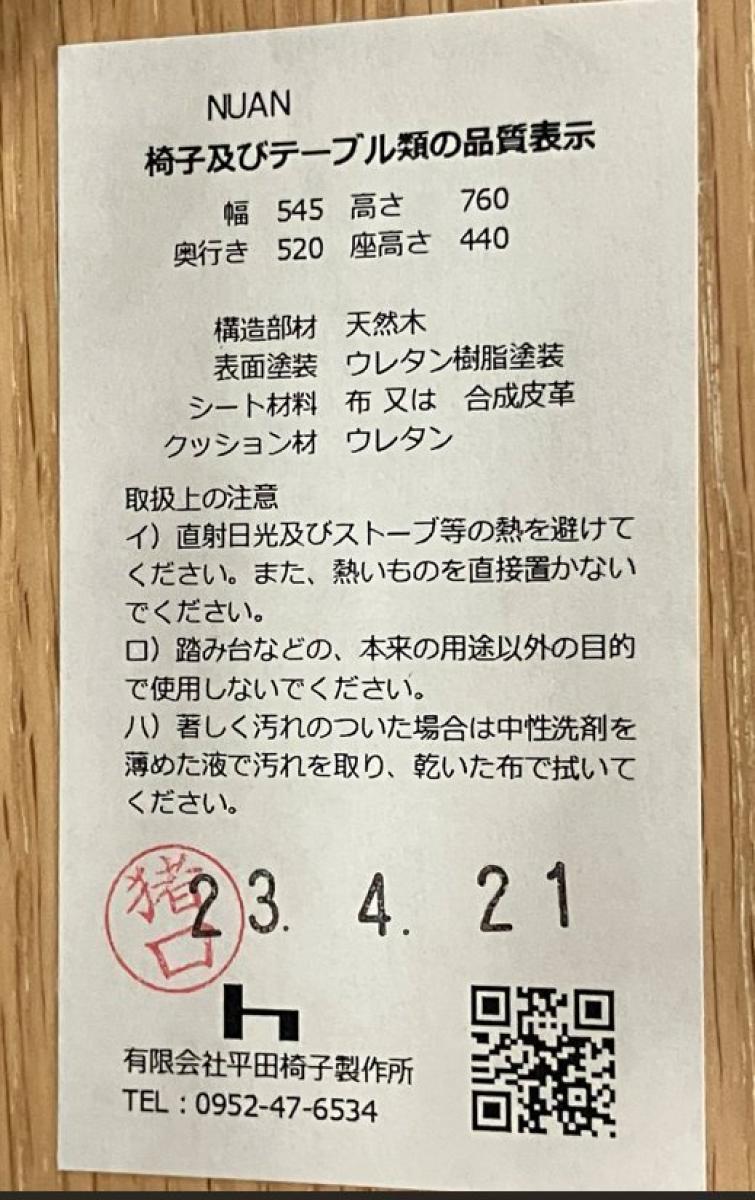 NUAN
椅子及びテーブル類の品質表示
幅 545 高さ 760
奥行き 520 座高さ 440
構造部材 天然木
表面塗装 ウレタン樹脂塗装
シート材料 布 又は 合成皮革
クッション材 ウレタン
取扱上の注意
イ）直射日光及びストーブ等の熱を避けて
ください。また、熱いものを直接置かない
でください。
ロ）踏み台などの、本来の用途以外の目的
で使用しないでください。
ハ）著しく汚れのついた場合は中性洗剤を
薄めた液で汚れを取り、乾いた布で拭いて
ください。
猪口
23. 4. 21
有限会社平田椅子製作所
TEL：0952-47-6534